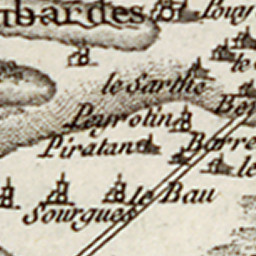 bardes Pouy
le
le Sarthe
Peyrolin Ber
Piratan Barre
le
le Bau
Sourgues